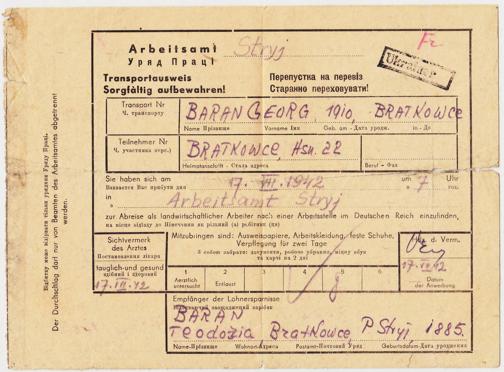 Arbeitsamt Stryj
Уряд Праці
Fr
Ukrainer
Transportausweis
Sorgfältig aufbewahren!
Перепустка на перевіз
Старанно переховувати!
Transport Nr
Ч. транспорту
BARAN GEORG, 1910, BRATKOWCE
Name Прізвище Vorname Імя Geb. am - Дата уродж. in - До
Teilnehmer Nr
Ч. участника перс.)
BRATKOWCE, Hsn. 22
Heimatanschrift - Стала адреса
Beruf - Фах
Sie haben sich am 17. VII. 1942 um 7 Uhr
Взивається Вас прибути дня год.
in Arbeitsamt Stryj
в
zur Abreise als landwirtschaftlicher Arbeiter nach einer Arbeitsstelle im Deutschen Reich einzufinden,
Sichtvermerk
des Arztes
Постановлення лікаря
tauglich und gesund
здібний і здоровий
17. VII. 42
Mitzubringen sind: Ausweispapiere, Arbeitskleidung, feste Schuhe,
Verpflegung für zwei Tage
З собою забрати: документи, робоче убрання, міцну обув
та харчі на 2 дні
1 2 3 4 5 6
Aerztlich
untersucht
Entlaust
d. Verm.
17. VII. 42
Datum
der Anwerbung
Empfänger der Lohnersparnisse
BARAN
Teodozia, Bratkowce, P. Stryj, 1885.
Name-Прізвище Wohnort-Адреса Postamt-Почтовий Уряд Geburtsdatum-Дата уродження
Відбитку може відірвати тільки урядник Уряду Праці.
Der Durchschlag darf nur von Beamten des Arbeitsamtes abgetrennt
werden.